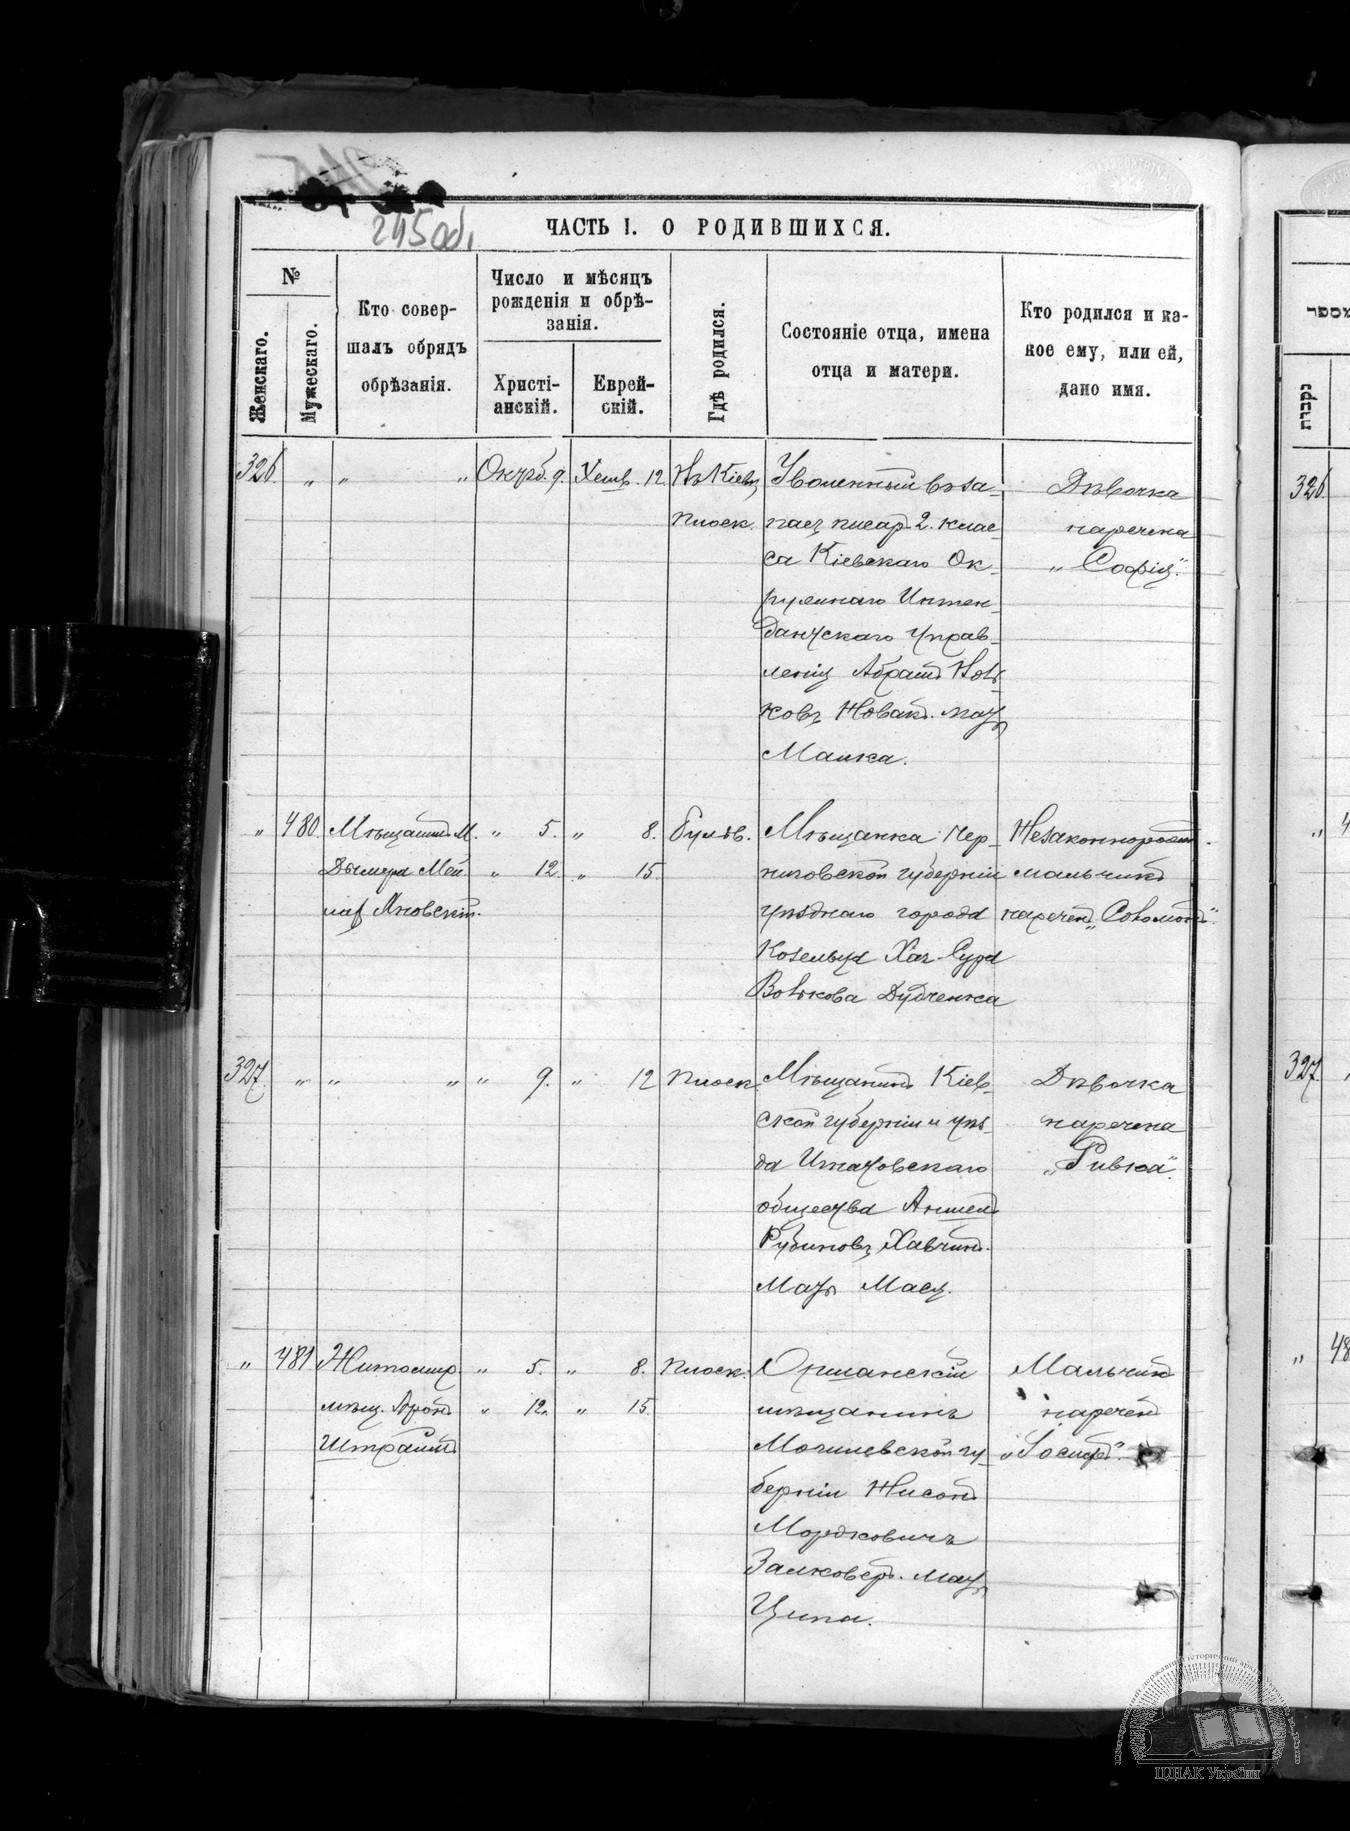 245 об.
ЧАСТЬ I. О РОДИВШИХСЯ.
№
Женскаго.
Мужескаго.
Кто совер-
шалъ обрядъ
обрѣзанія.
Число и мѣсяцъ
рожденія и обрѣ-
занія.
Христі-
анскій.
Еврей-
скій.
Гдѣ родился.
Состояніе отца, имена
отца и матери.
Кто родился и ка-
кое ему, или ей,
дано имя.
326. " " " Октб. 9. Хешв. 12
Плоск.
Уволенный въ за-
пасъ писарь 2. клас-
са Кіевскаго Ок-
ружнаго Интен-
дантскаго Управ-
ленія Абрамъ
мать
Малка.
Дѣвочка
наречена
„Софія".
" 480. Мѣщанинъ М. " 5. " 8. Бульв.
Дымера
Яновскій. " 12. " 15.
Мѣщанка Чер-
ниговской губерніи
уѣзднаго города
Козельца Хая-Сура
Волькова Дубченка
Незаконнорожд.
мальчикъ
нареченъ „Соломонъ".
327. " " " " 9. " 12 Плоск.
Мѣщанинъ Кіев-
ской губерніи и уѣз-
да Игнатовскаго
общества Аншель
Рубиновъ Хавчинъ.
Мать Мася.
Дѣвочка
наречена
„Ривка".
" 481 Житомир. " 5. " 8. Плоск.
мѣщ. Аронъ " 12. " 15.
Штрамъ
Оршанскій
мѣщанинъ
Могилевской гу-
берніи Нисонъ
Мордковичъ
мать
Ципа.
Мальчикъ
нареченъ
„Іосифъ".
מספר
נקבות
326.
" 4
327.
" 48
ЦДІАК України